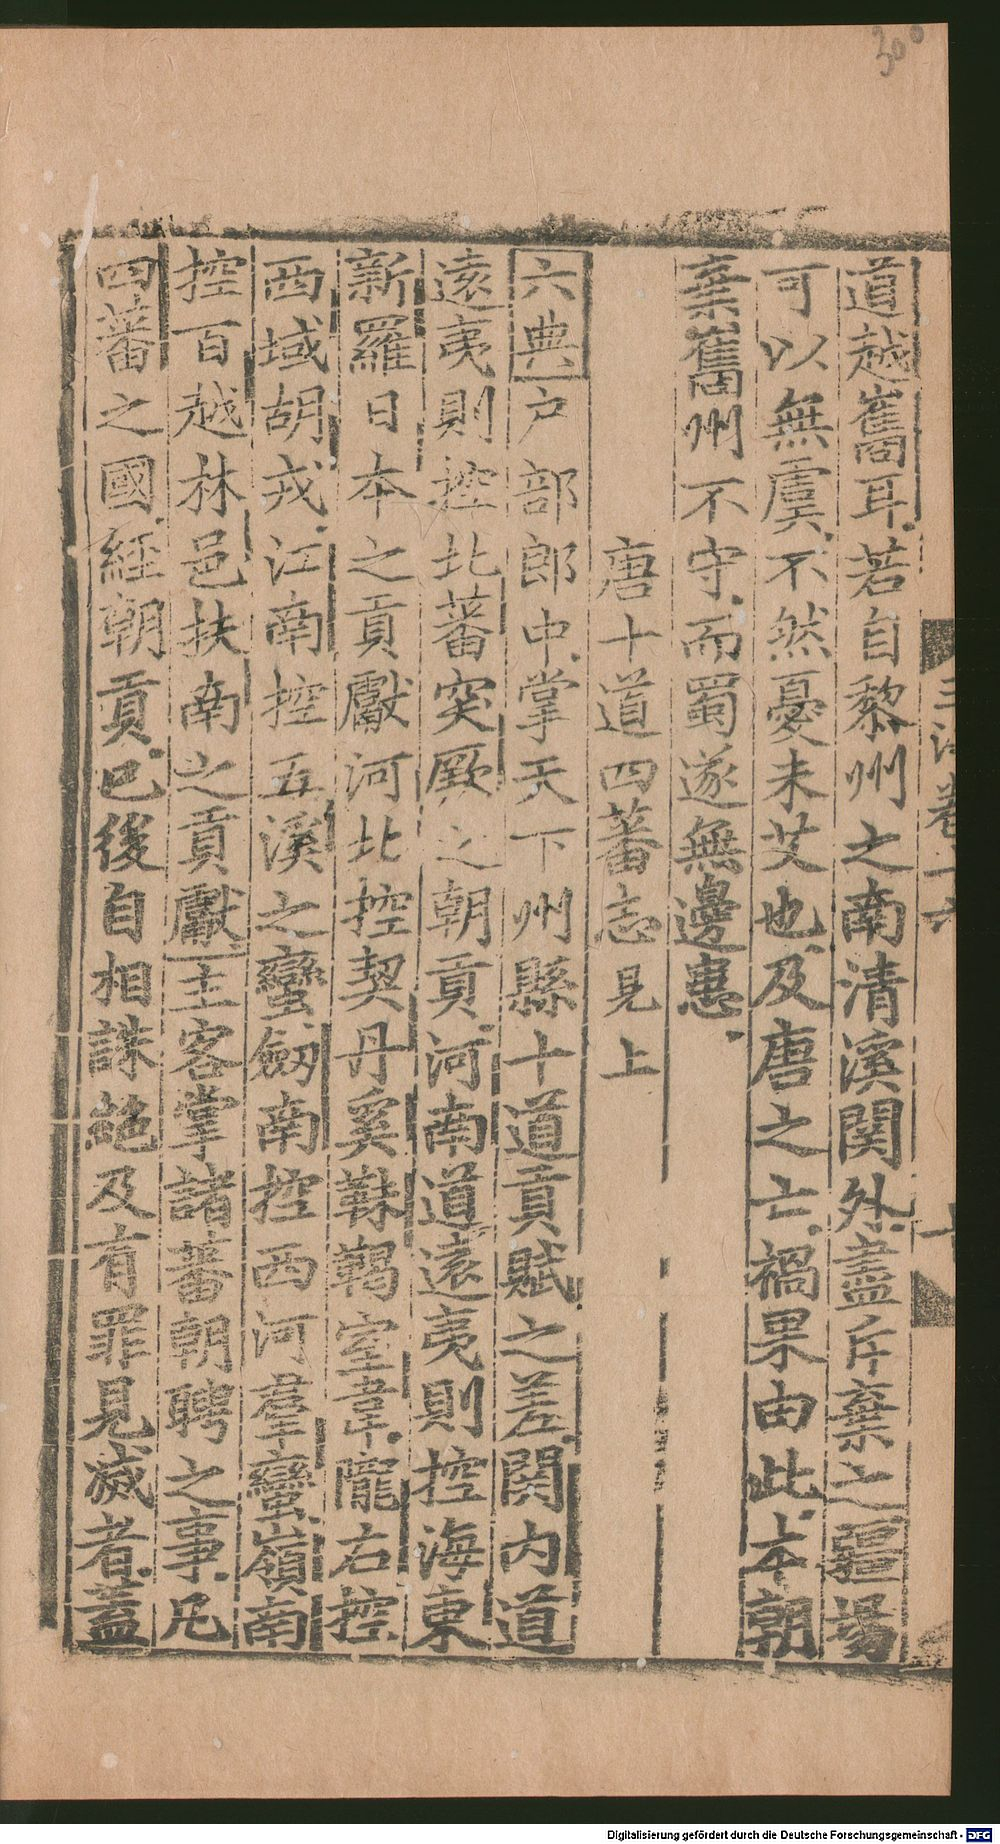 300
道越舊耳若自黎州之南清溪關外盡斥棄之疆埸
可以無虞不然憂未艾也及唐之亡禍果由此本朝
棄舊州不守而蜀遂無邊患
唐十道四蕃志見上
六典戶部郎中掌天下州縣十道貢賦之差關内道
遠夷則控北蕃突厥之朝貢河南道遠夷則控海東
新羅日本之貢獻河北控契丹奚靺鞨室韋隴右控
西域胡戎江南控五溪之蠻劒南控西河羣蠻嶺南
控百越林邑扶南之貢獻主客掌諸蕃朝聘之事凡
四蕃之國経朝貢已後自相誅絶及有罪見滅者蓋
Digitalisierung gefördert durch die Deutsche Forschungsgemeinschaft - DFG